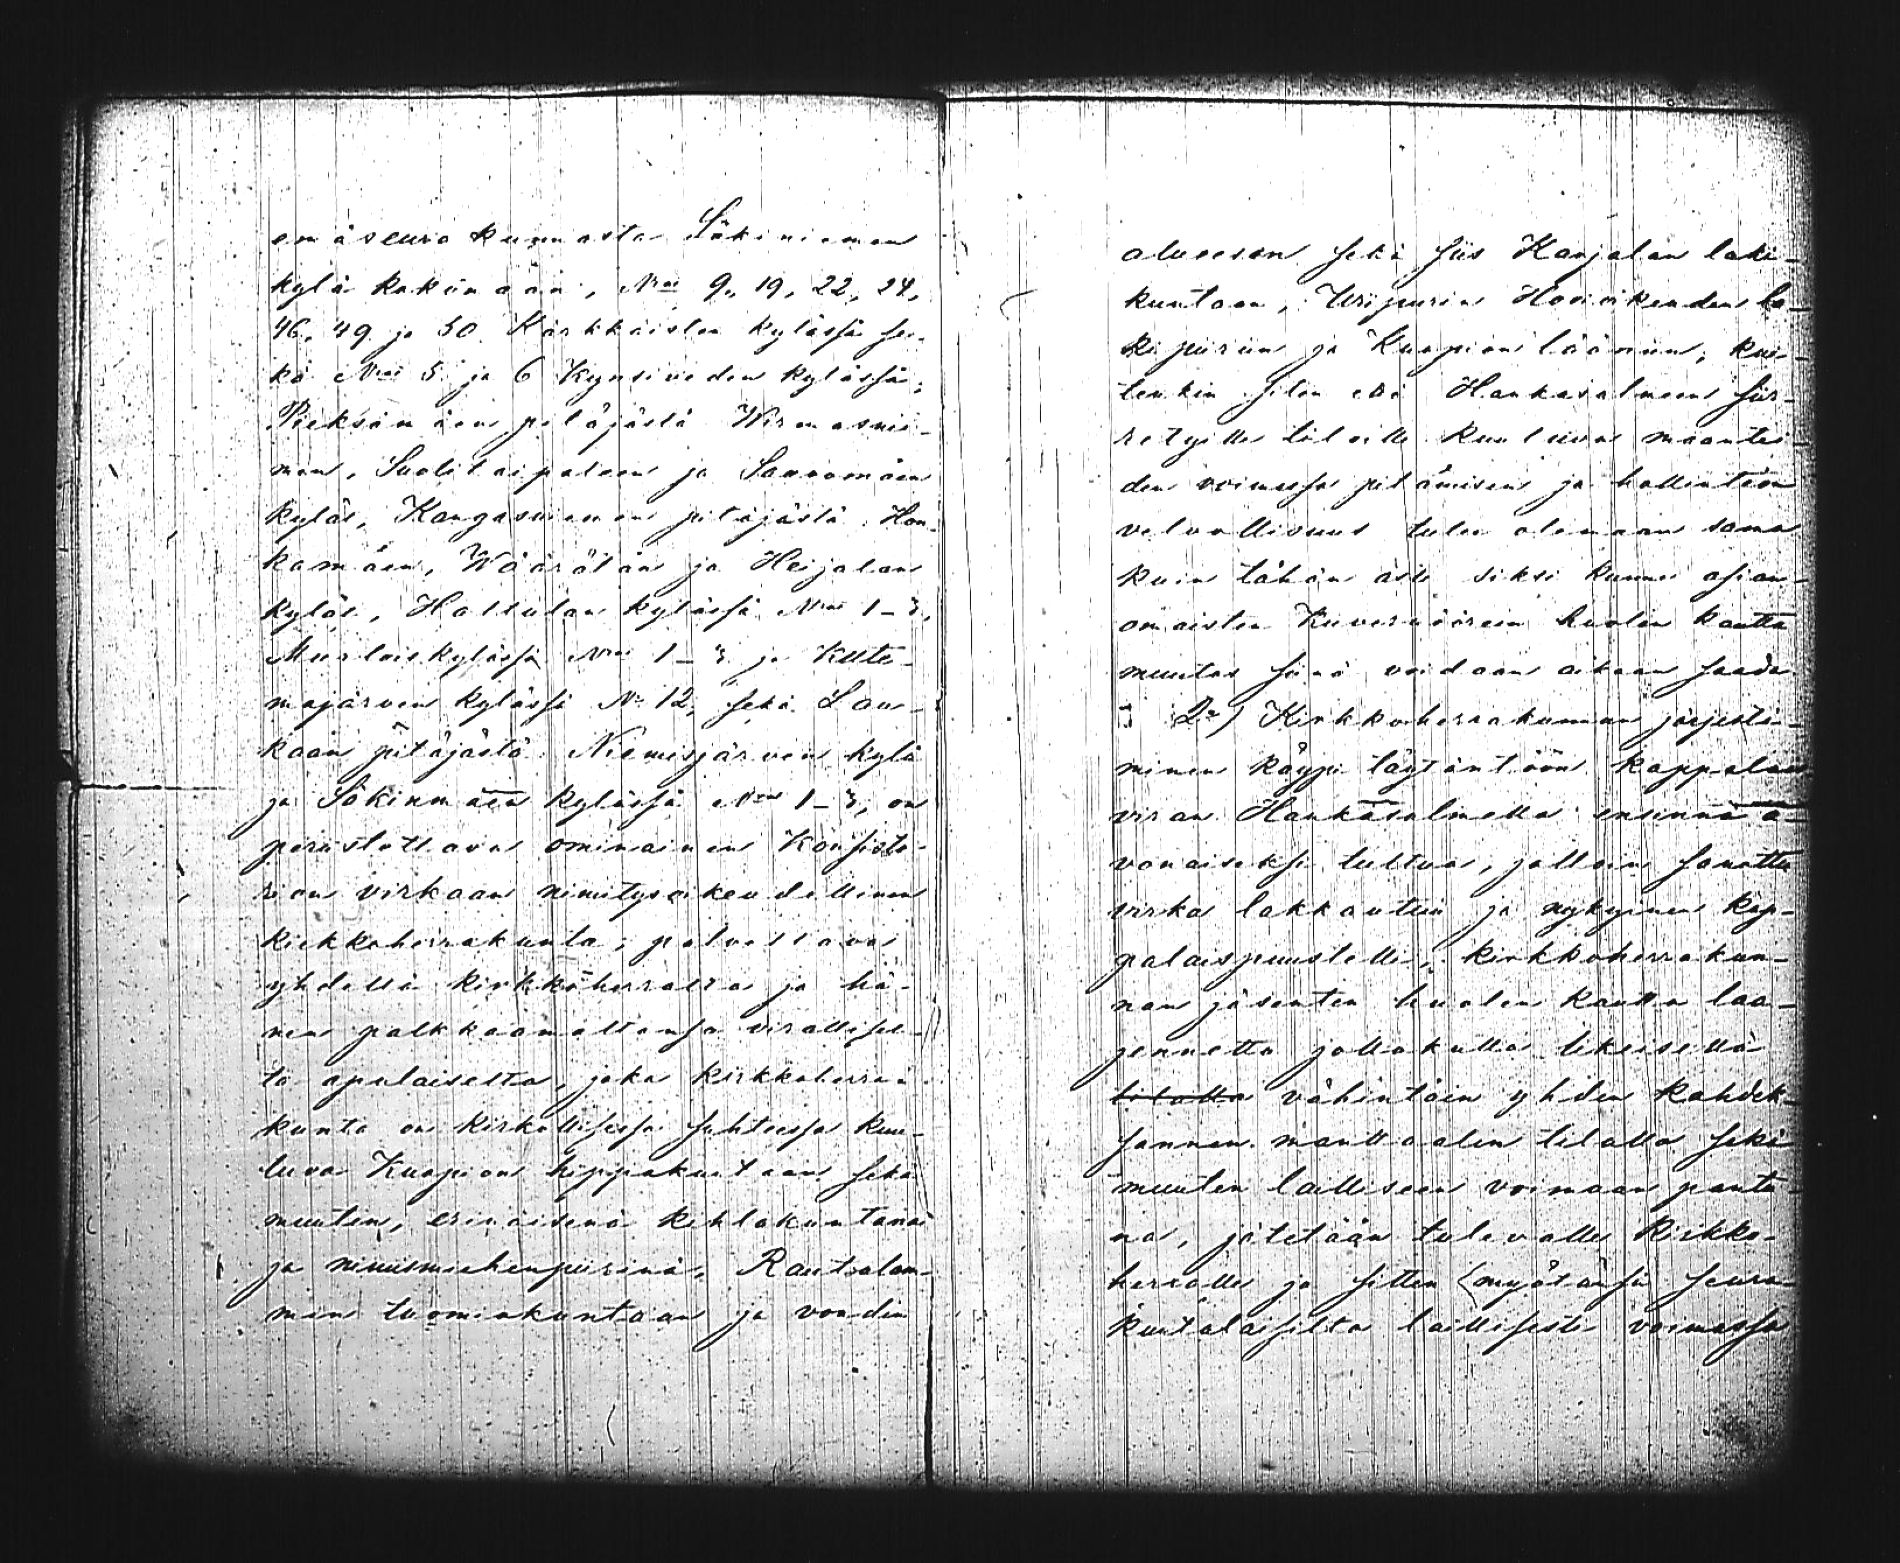 emäseurakunnasta Säkiniemen
kylä kokonaan, N:ot 9, 19, 22, 24,
46, 49 ja 50 Kärkkäisten kylässä se-
kä N:ot 5 ja 6 Kynsiveden kylässä;
Pieksämäen pitäjästä Wirmasnie-
men, Suolitaipaleen ja Saaromäen
kylät, Kangasniemen pitäjästä Hon-
kamäen, Wäärälän ja Heijalan
kylät, Halsulan kylässä N:ot 1–3,
Murtois kylässä N:ot 1–3 ja Kute-
majärven kylässä N:o 12, sekä Lau-
kaan pitäjästä Niemisjärven kylä
ja Säkinmäen kylässä N:ot 1–3, on
perustettava ominainen Konsisto-
rion virkaan nimitysoikeudellinen
kirkkoherrakunta, palveltava
yhdeltä kirkkoherralta ja hä-
nen palkkaamaltansa virallisel-
ta apulaiselta, joka kirkkoherra-
kunta on kirkollisessa suhteessa kuu-
luva Kuopion hippakuntaan sekä
muuten, erinäisenä kihlakuntana
ja nimismiehenpiirinä, Rautalam-
min tuomiokuntaan ja voudin
alueesen sekä siis Karjalan laki-
kuntaan, Wiipurin Hovioikeuden la-
kipiiriin ja Kuopion lääniin, kui-
tenkin siten että Hankasalmeen siir-
retyille tiloille kuuluvan maantei-
den voimassa pitämisen ja hollinteon
velvollisuus tulee olemaan sama
kuin tähän asti siksi kunne asian-
omaisten Kuvernöörein huolen kautta
muutos siinä voidaan aikaan saada
2:o) Kirkkoherrakunnan järjestä-
minen käypi täytäntöön kappalais-
viran Hankasalmella ensinnä a-
vonaiseksi tultua, jolloin sanottu
virka lakkautuu ja nykyinen kap-
palaispuustelli, kirkkoherrakun-
nan jäsenten huolen kautta laa-
jennettu jollakulla likeisellä
tilalla vähintäin yhden kahdek-
sannen manttaalin tilalla sekä
muuten lailliseen voimaan pantu-
na, jätetään tulevalle Kirkko-
herralle ja sitten (myötänsä seura-
kuntalaisilta laillisesti voimassa